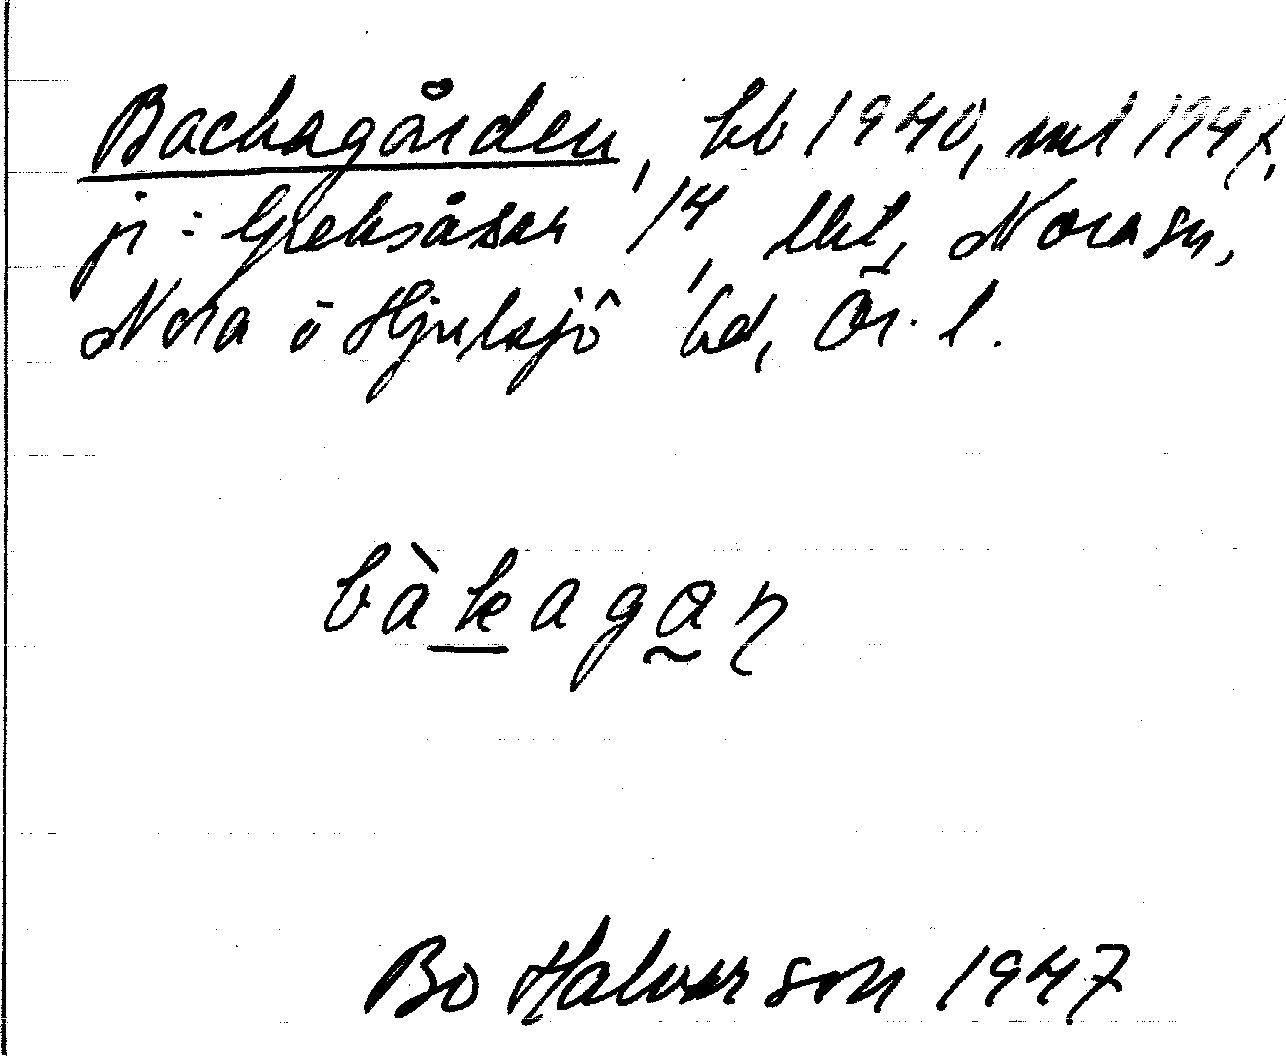 Backagården, bb 1940, ml 1947,
jr: Greksåsar 1/4, lkl, Nora sn,
Nora o Hjulsjö bd, Ör. l.
bàkagaɳ
Bo Halvarson 1947